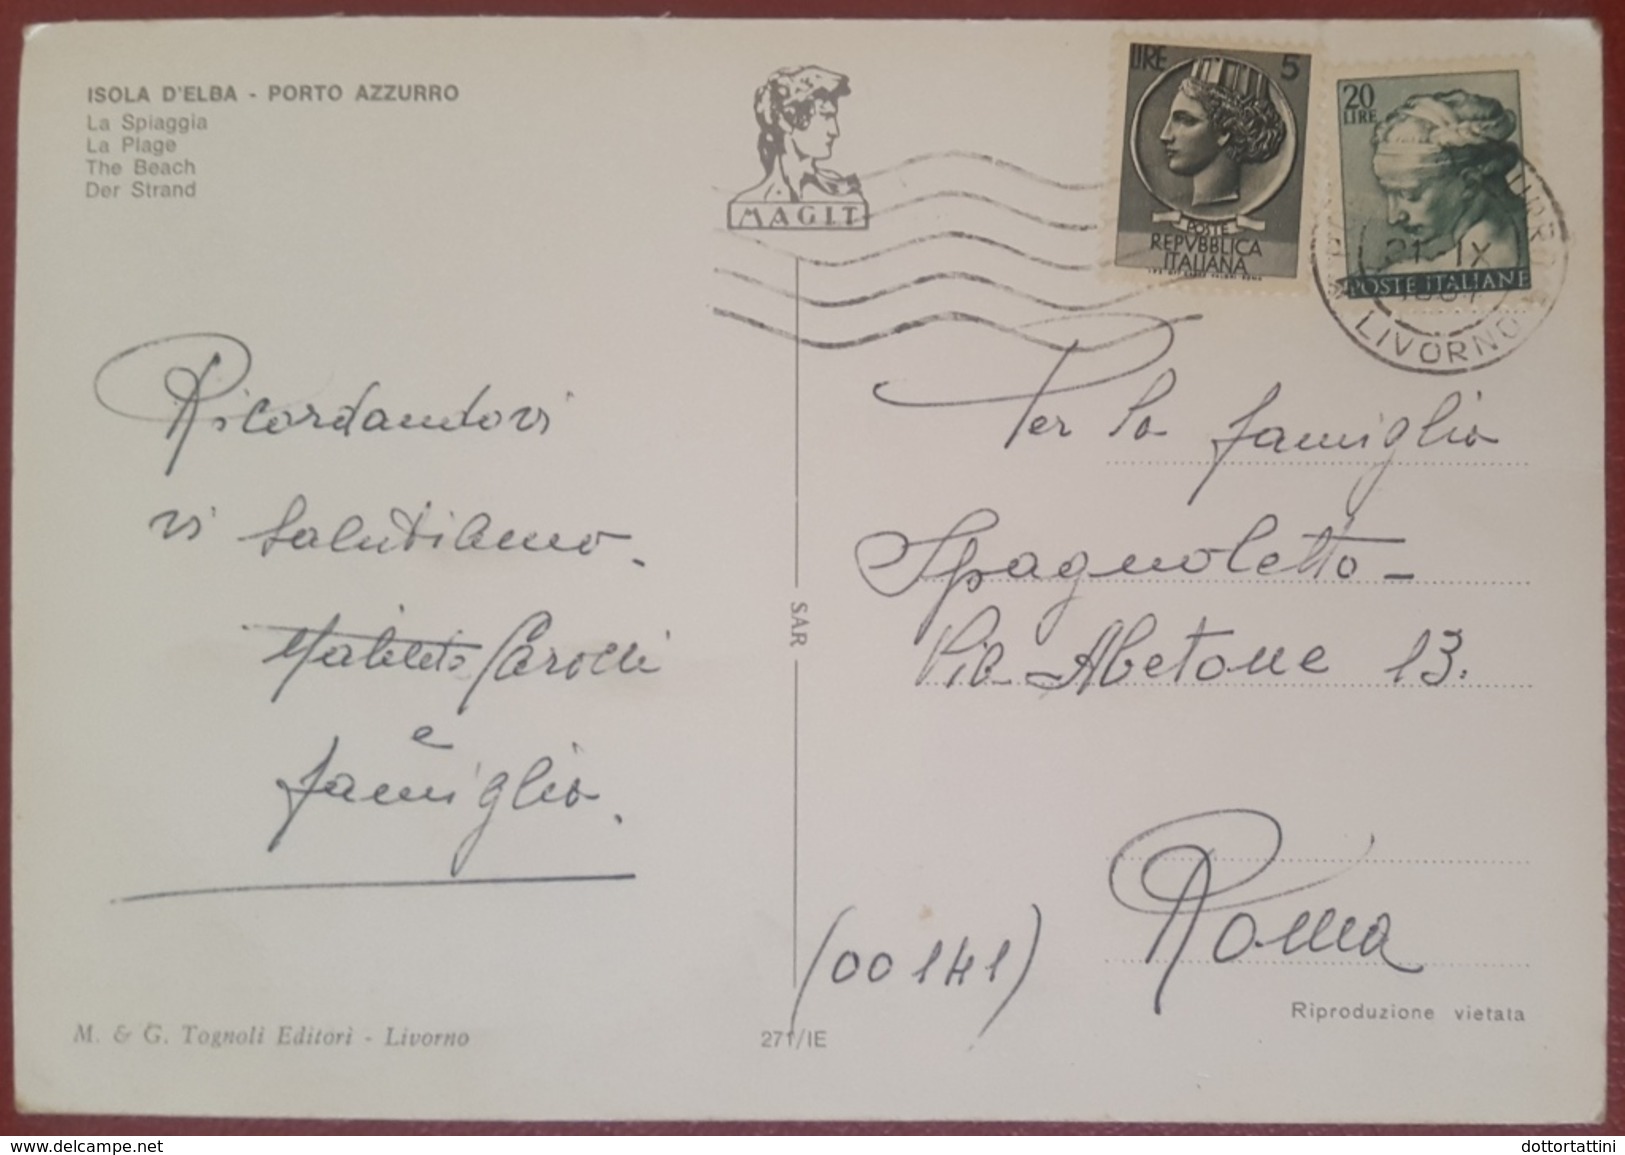 ISOLA D'ELBA - PORTO AZZURRO
La Spiaggia
La Plage
The Beach
Der Strand
MAGIT
LIRE 5
POSTE
REPVBBLICA
ITALIANA
20
LIRE
POSTE ITALIANE
21 - IX
LIVORNO
Ricordandovi
vi salutiamo.
Carolli
e
famiglia.
SAR
Per la famiglia
Spagnoletto -
Via Abetone 13.
(00141)
Roma
Riproduzione vietata
M. & G. Tognoli Editori - Livorno
271/IE
www.delcampe.net
dottortattini